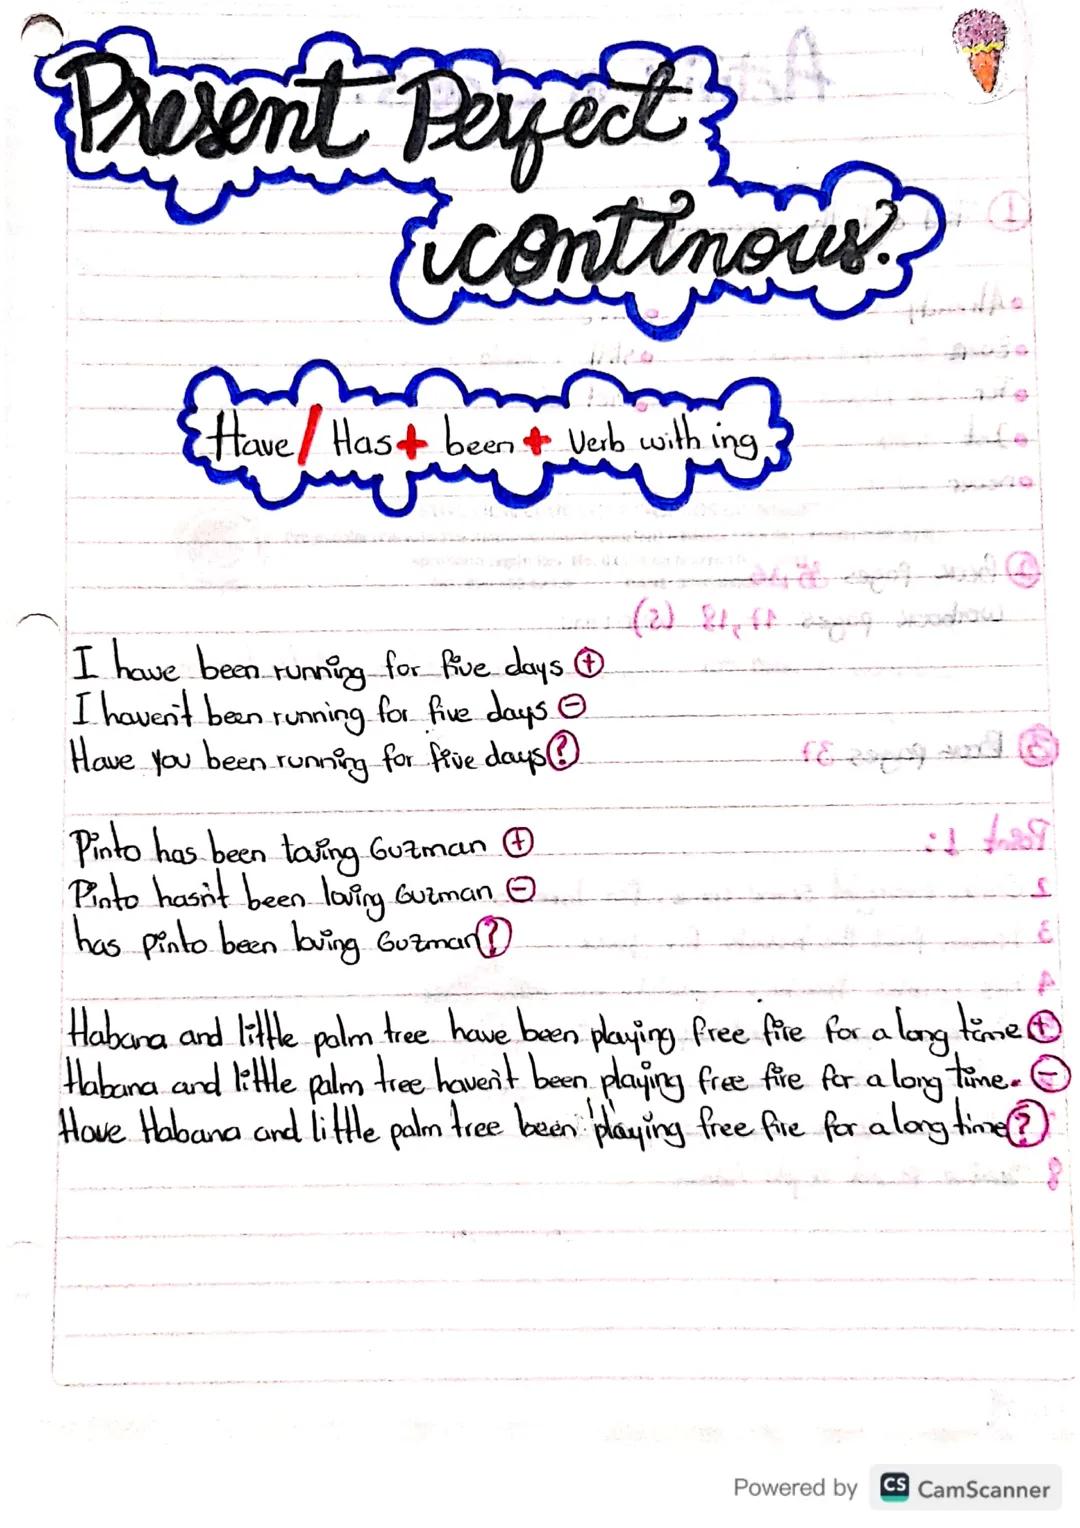 Present Perfect
continous.
Have / Has + been + Verb with ing
I have been running for five days (+)
I haven't been running for five days (-)
Have you been running for five days (?)
Pinto has been loving Guzman (+)
Pinto hasn't been loving Guzman (-)
has pinto been loving Guzman (?)
Habana and little palm tree have been playing free fire for a long time (+)
Habana and little palm tree haven't been playing free fire for a long time. (-)
Have Habana and little palm tree been playing free fire for a long time (?)
Powered by CS CamScanner